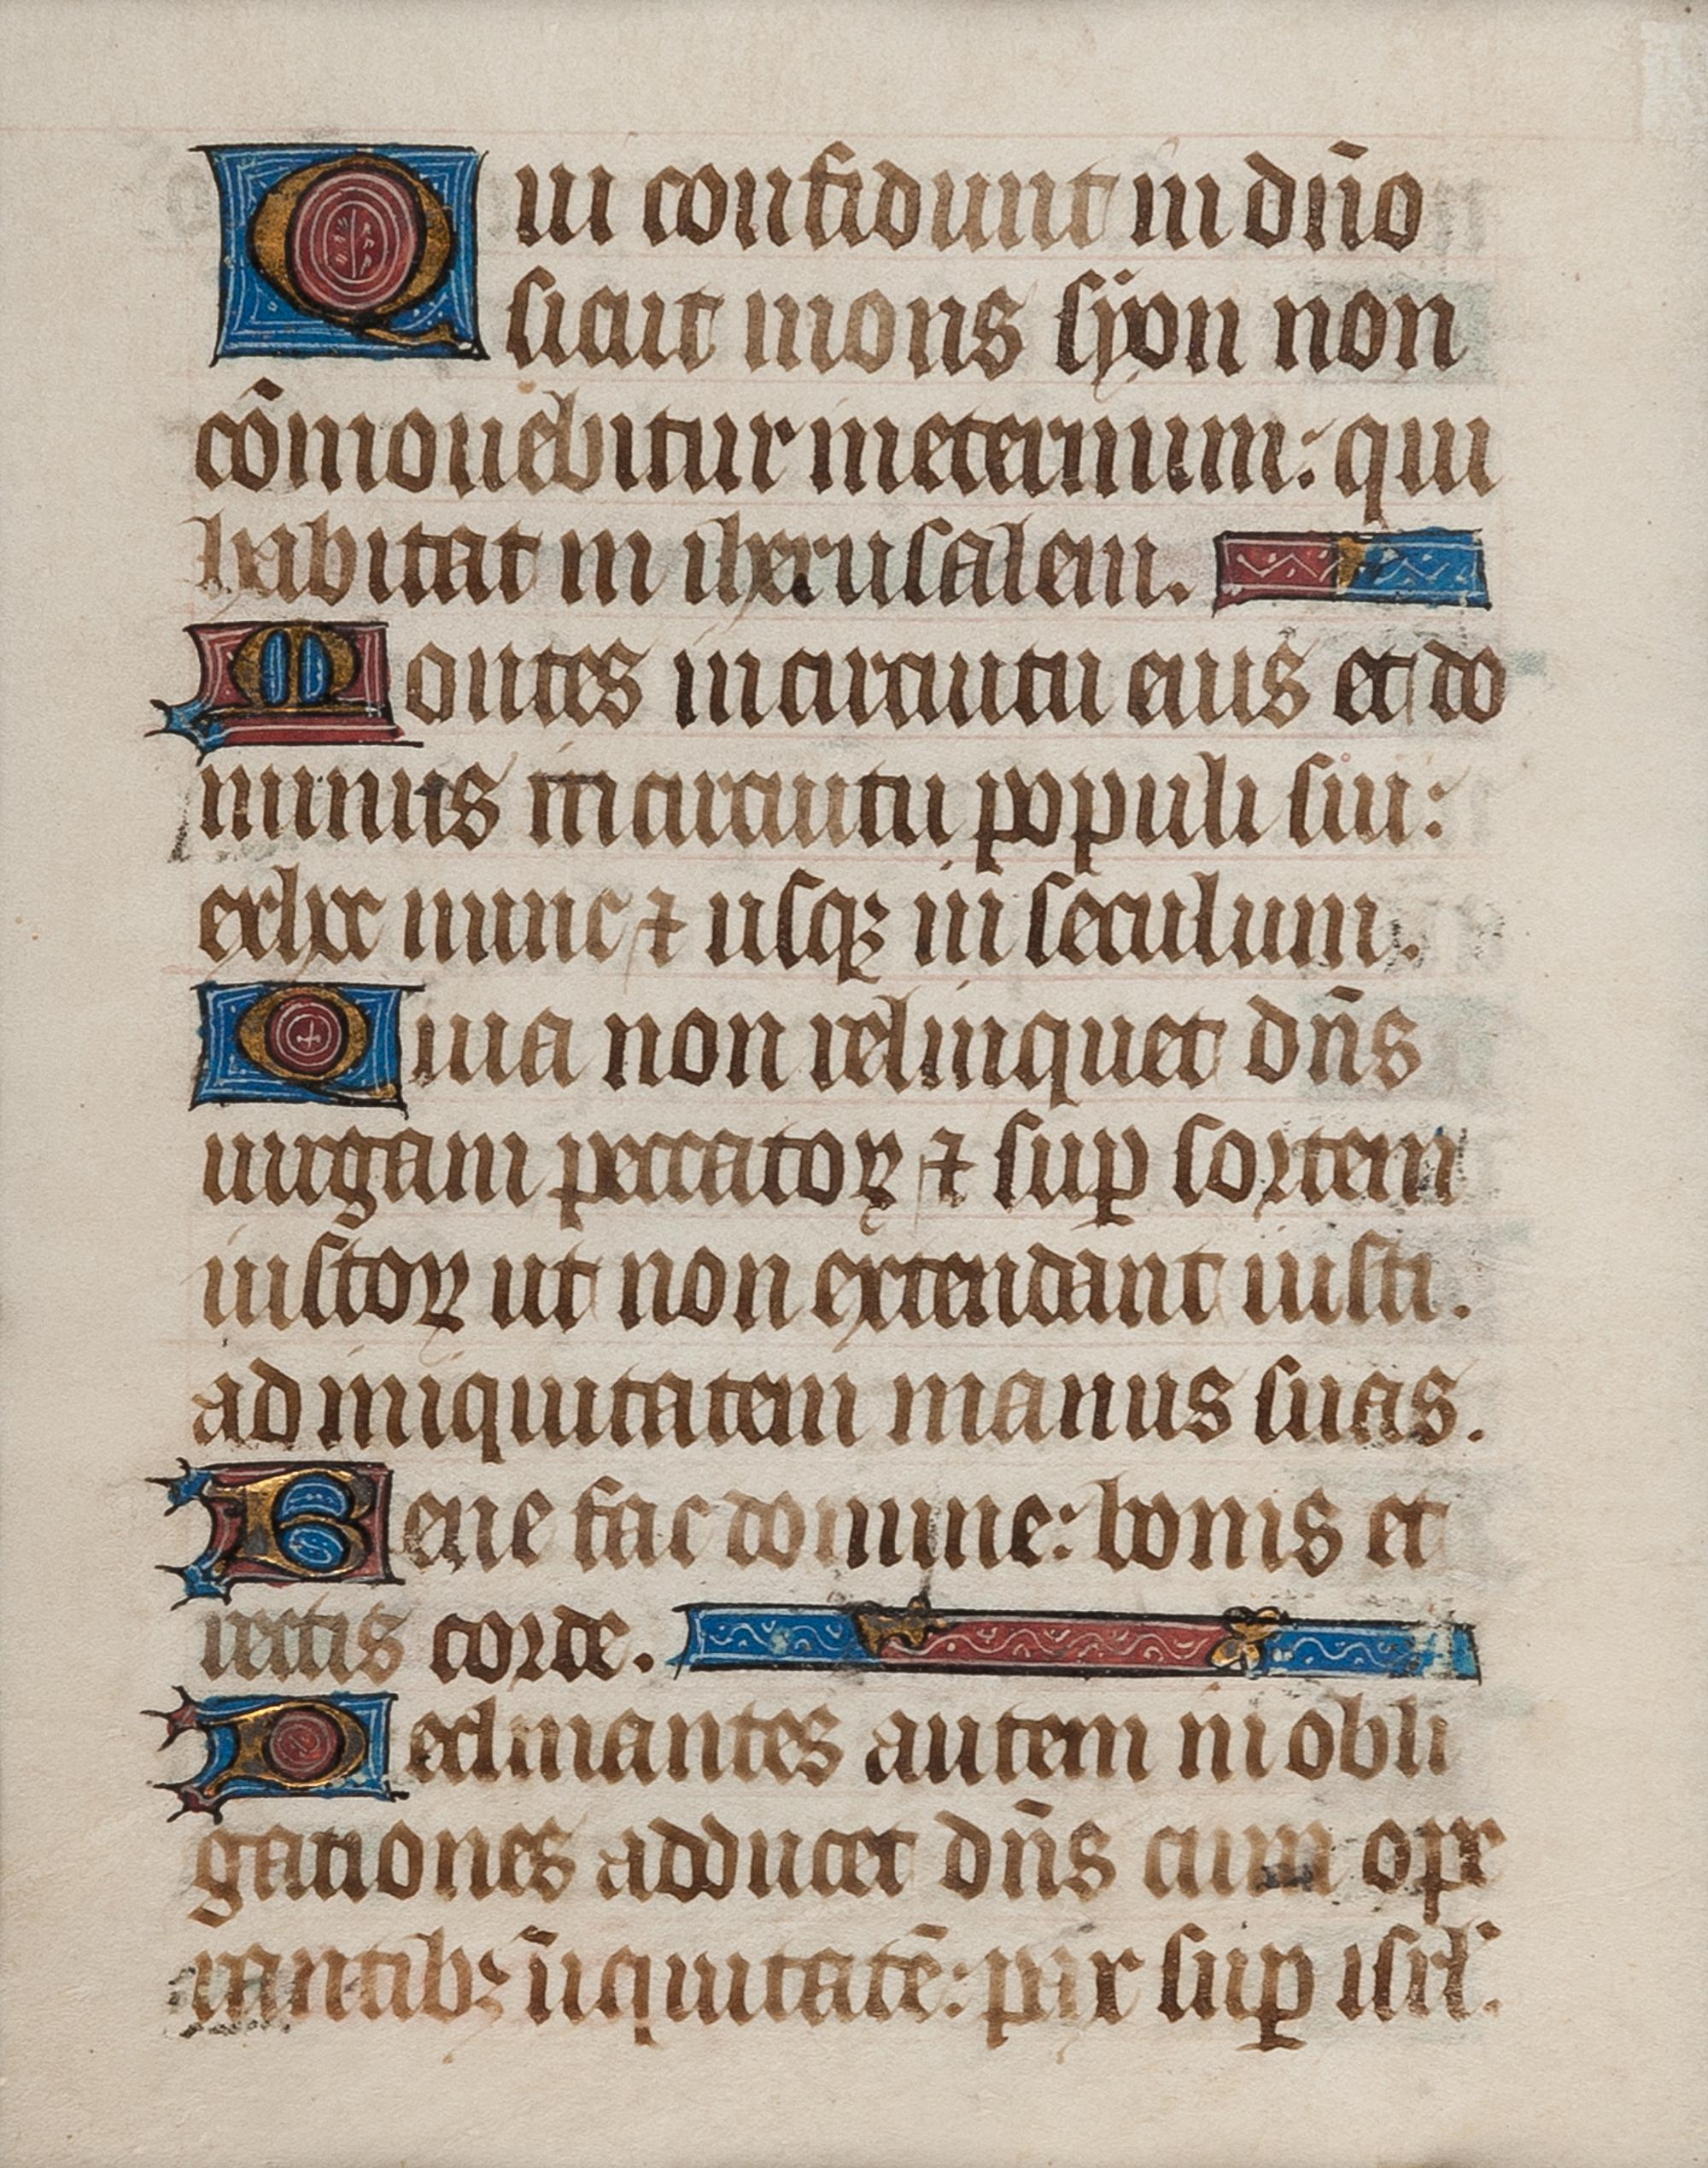 Qui confidunt in dño
sicut mons syon non
cōmouebitur in eternum: qui
habitat in iherusalem.
Montes in circuitu eius et do
minus in circuitu populi sui:
ex hoc nunc ⁊ usqꝫ in seculum.
Quia non relinquet dñs
uirgam peccatoꝝ ⁊ suꝑ sortem
iustoꝝ ut non extendant iusti.
ad iniquitatem manus suas.
Bene fac domine: bonis et
rectis corde.
Declinantes autem in obli
gationes adducet dñs cum ope
rantibꝫ iīquitatē: pax suꝑ isrł.